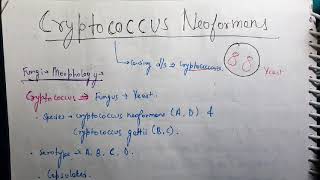 Cryptococcus Neoformans
causing d/s ⇒ Cryptococcosis
Yeast
Fungi - Morphology →
Cryptococcus ⇒ Fungus + Yeast.
• Species → Cryptococcus neoformans (A, D) &
Cryptococcus gattii (B, C).
• Serotype → A, B, C, D.
• Capsulated.